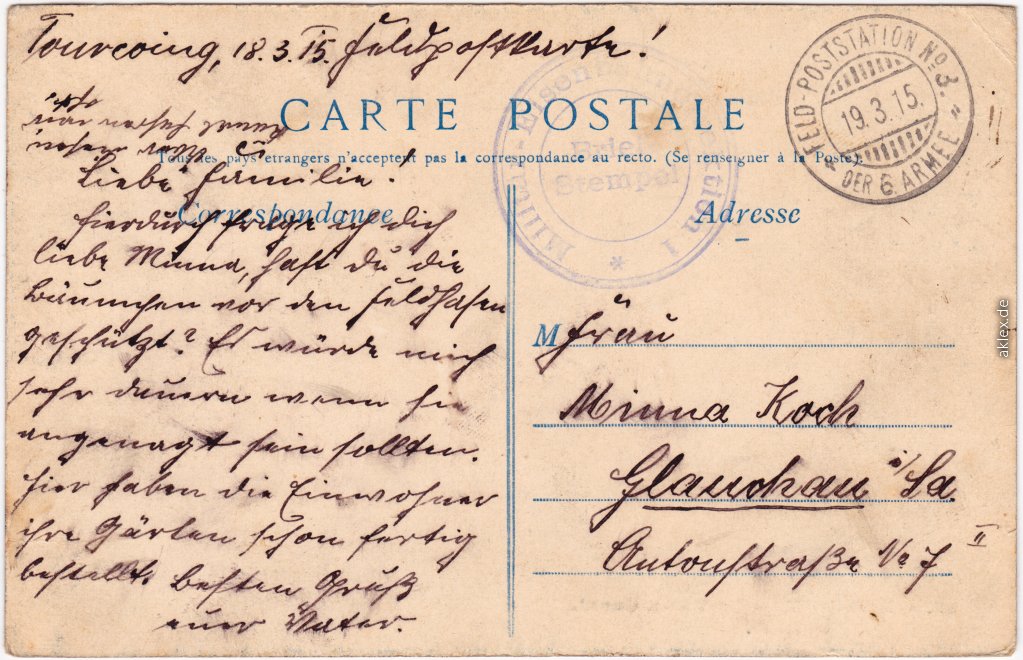 Tourcoing, 18.3.15. Feldpostkarte!
CARTE POSTALE
Tous les pays étrangers n'acceptent pas la correspondance au recto. (Se renseigner à la Poste).
Correspondance
Liebe Familie!
Hierdurch frage ich dich
liebe Minna, hast du die
Bäumchen vor den Feldhasen
geschützt? Es würde mich
sehr dauern wenn sie
angenagt sein sollten.
Hier haben die Einwohner
ihre Gärten schon fertig
bestellt. Besten Gruß
euer Vater.
Adresse
M Frau
Minna Koch
Glauchau i/Sa
Antonstraße No 7 II
FELD-POSTSTATION No 3.
19.3.15.
DER 6. ARMEE
Brief
Stempel
aklex.de